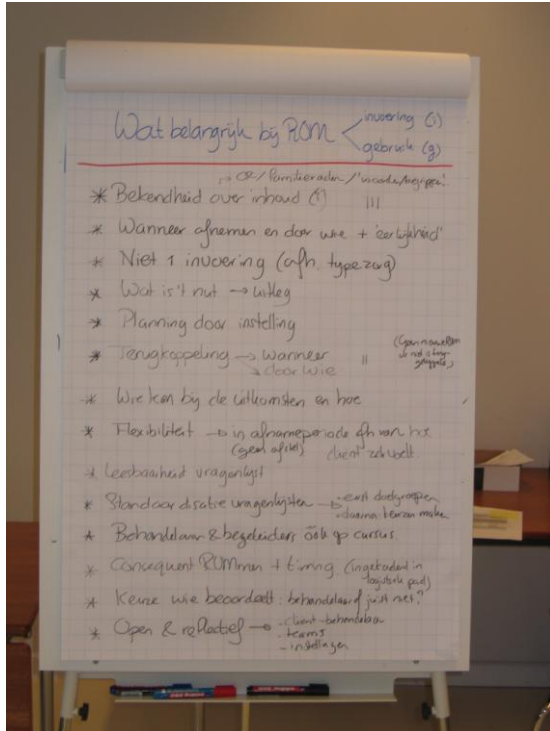 Wat belangrijk bij ROM
invoering (i)
gebruik (g)
→ CR / familieraden /
* Bekendheid over inhoud (i) |||
* Wanneer afnemen en door wie + 'eerlijkheid'
* Niet 1 invoering (afh. type zorg)
* Wat is 't nut → uitleg
* Planning door instelling
* Terugkoppeling → wanneer ||
→ door wie
* Wie kan bij de uitkomsten en hoe
* Flexibiliteit → in afnameperiode afh van hoe
(geen afstel) client zich voelt
* Leesbaarheid vragenlijst
* Standaardisatie vragenlijsten → - eerst doelgroepen
- daarna keuzen maken
* Behandelaren & begeleiders óók op cursus
* Consequent ROMmen + timing (ingekaderd in
logistiek pad)
* Keuze wie beoordeelt: behandelaar of juist niet?
* Open & reflectief → - client-behandelaar
- teams
- instellingen